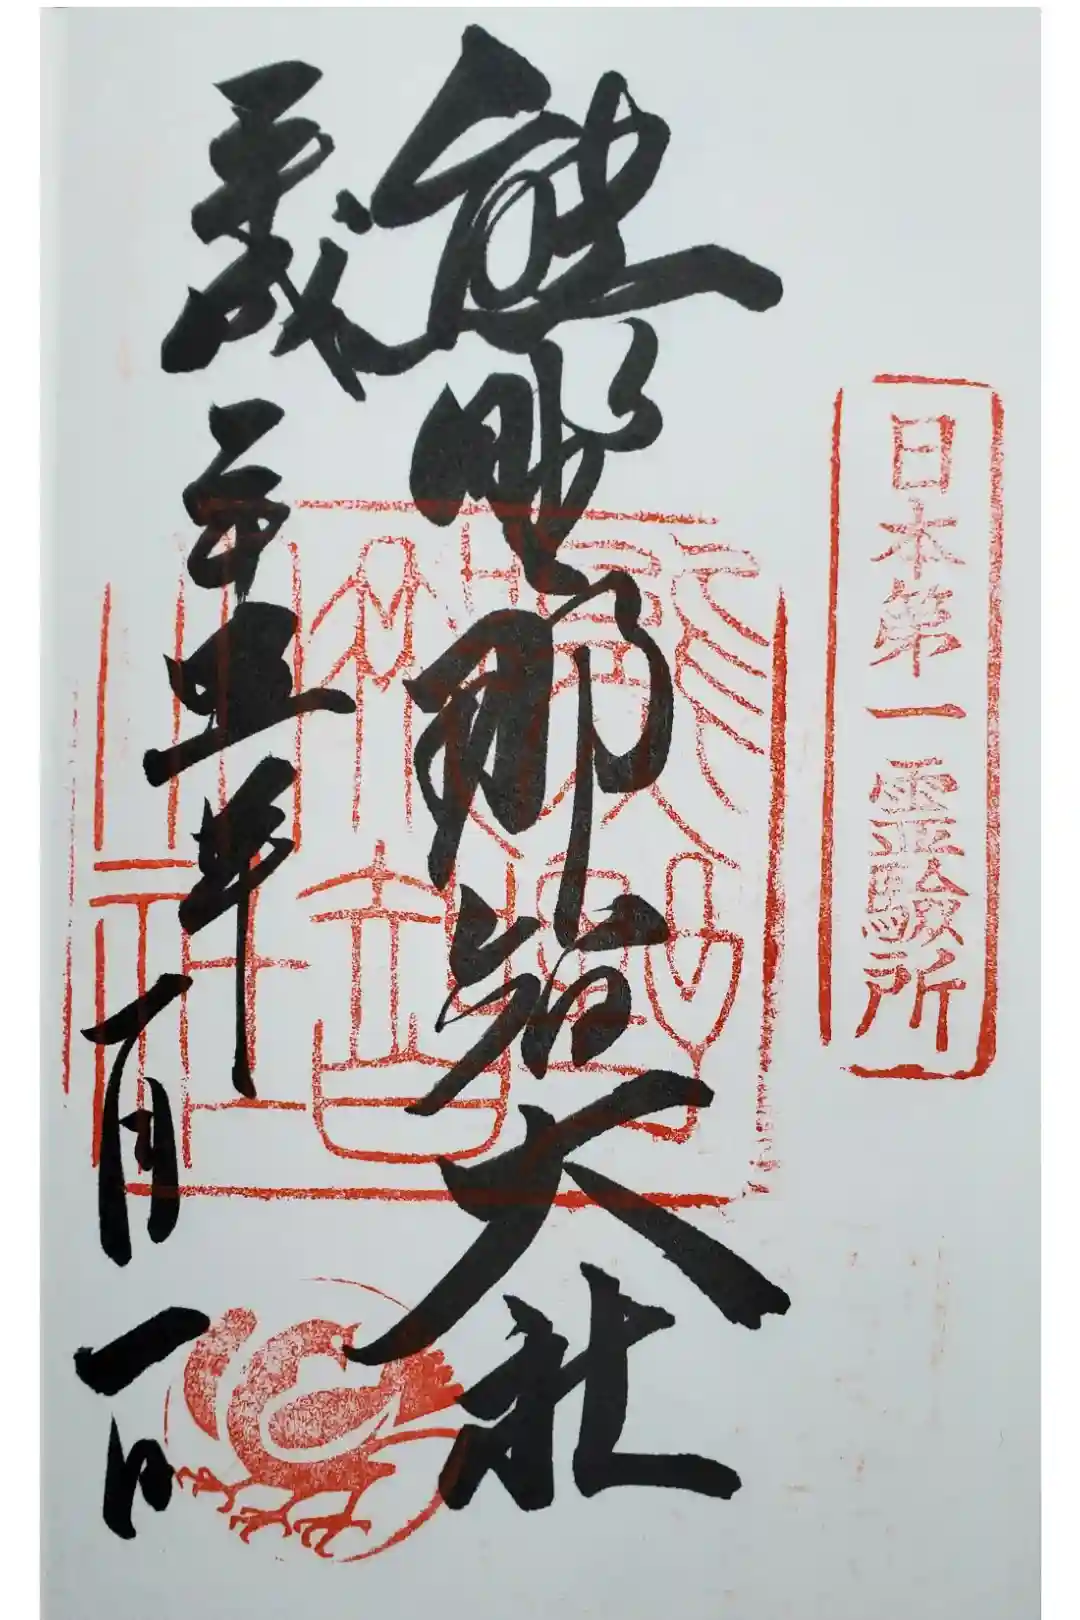 日本第一霊験所
熊野那智大社
平成二十五年一月一日